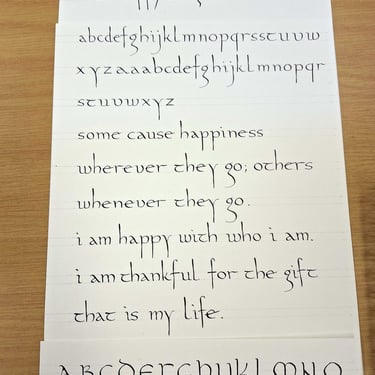 abcdefghijklmnopqrsstuvw
xyzaaabcdefghijklmnopqr
stuvwxyz
some cause happiness
wherever they go; others
whenever they go.
i am happy with who i am.
i am thankful for the gift
that is my life.
ABCDEFGHIJKLMNO